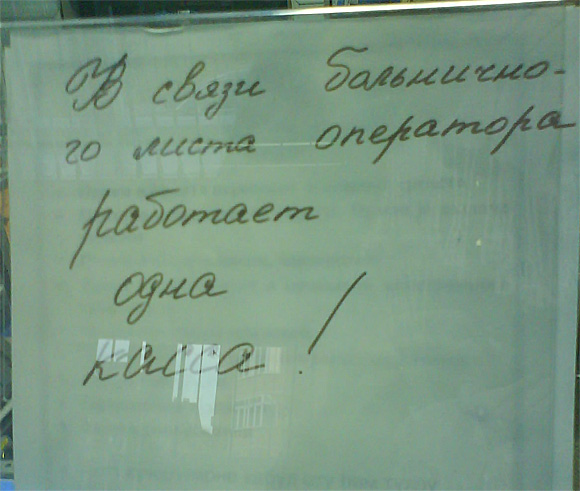 В связи больнично-
го листа оператора
работает
одна
касса!